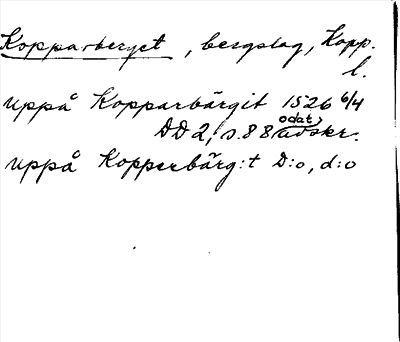 Kopparberget, bergslag, Kopp.
l.
uppå Kopparbärgit 1526 6/4
DD 2, s. 88 odat, avskr.
uppå Kopperbärg:t D:o, d:o